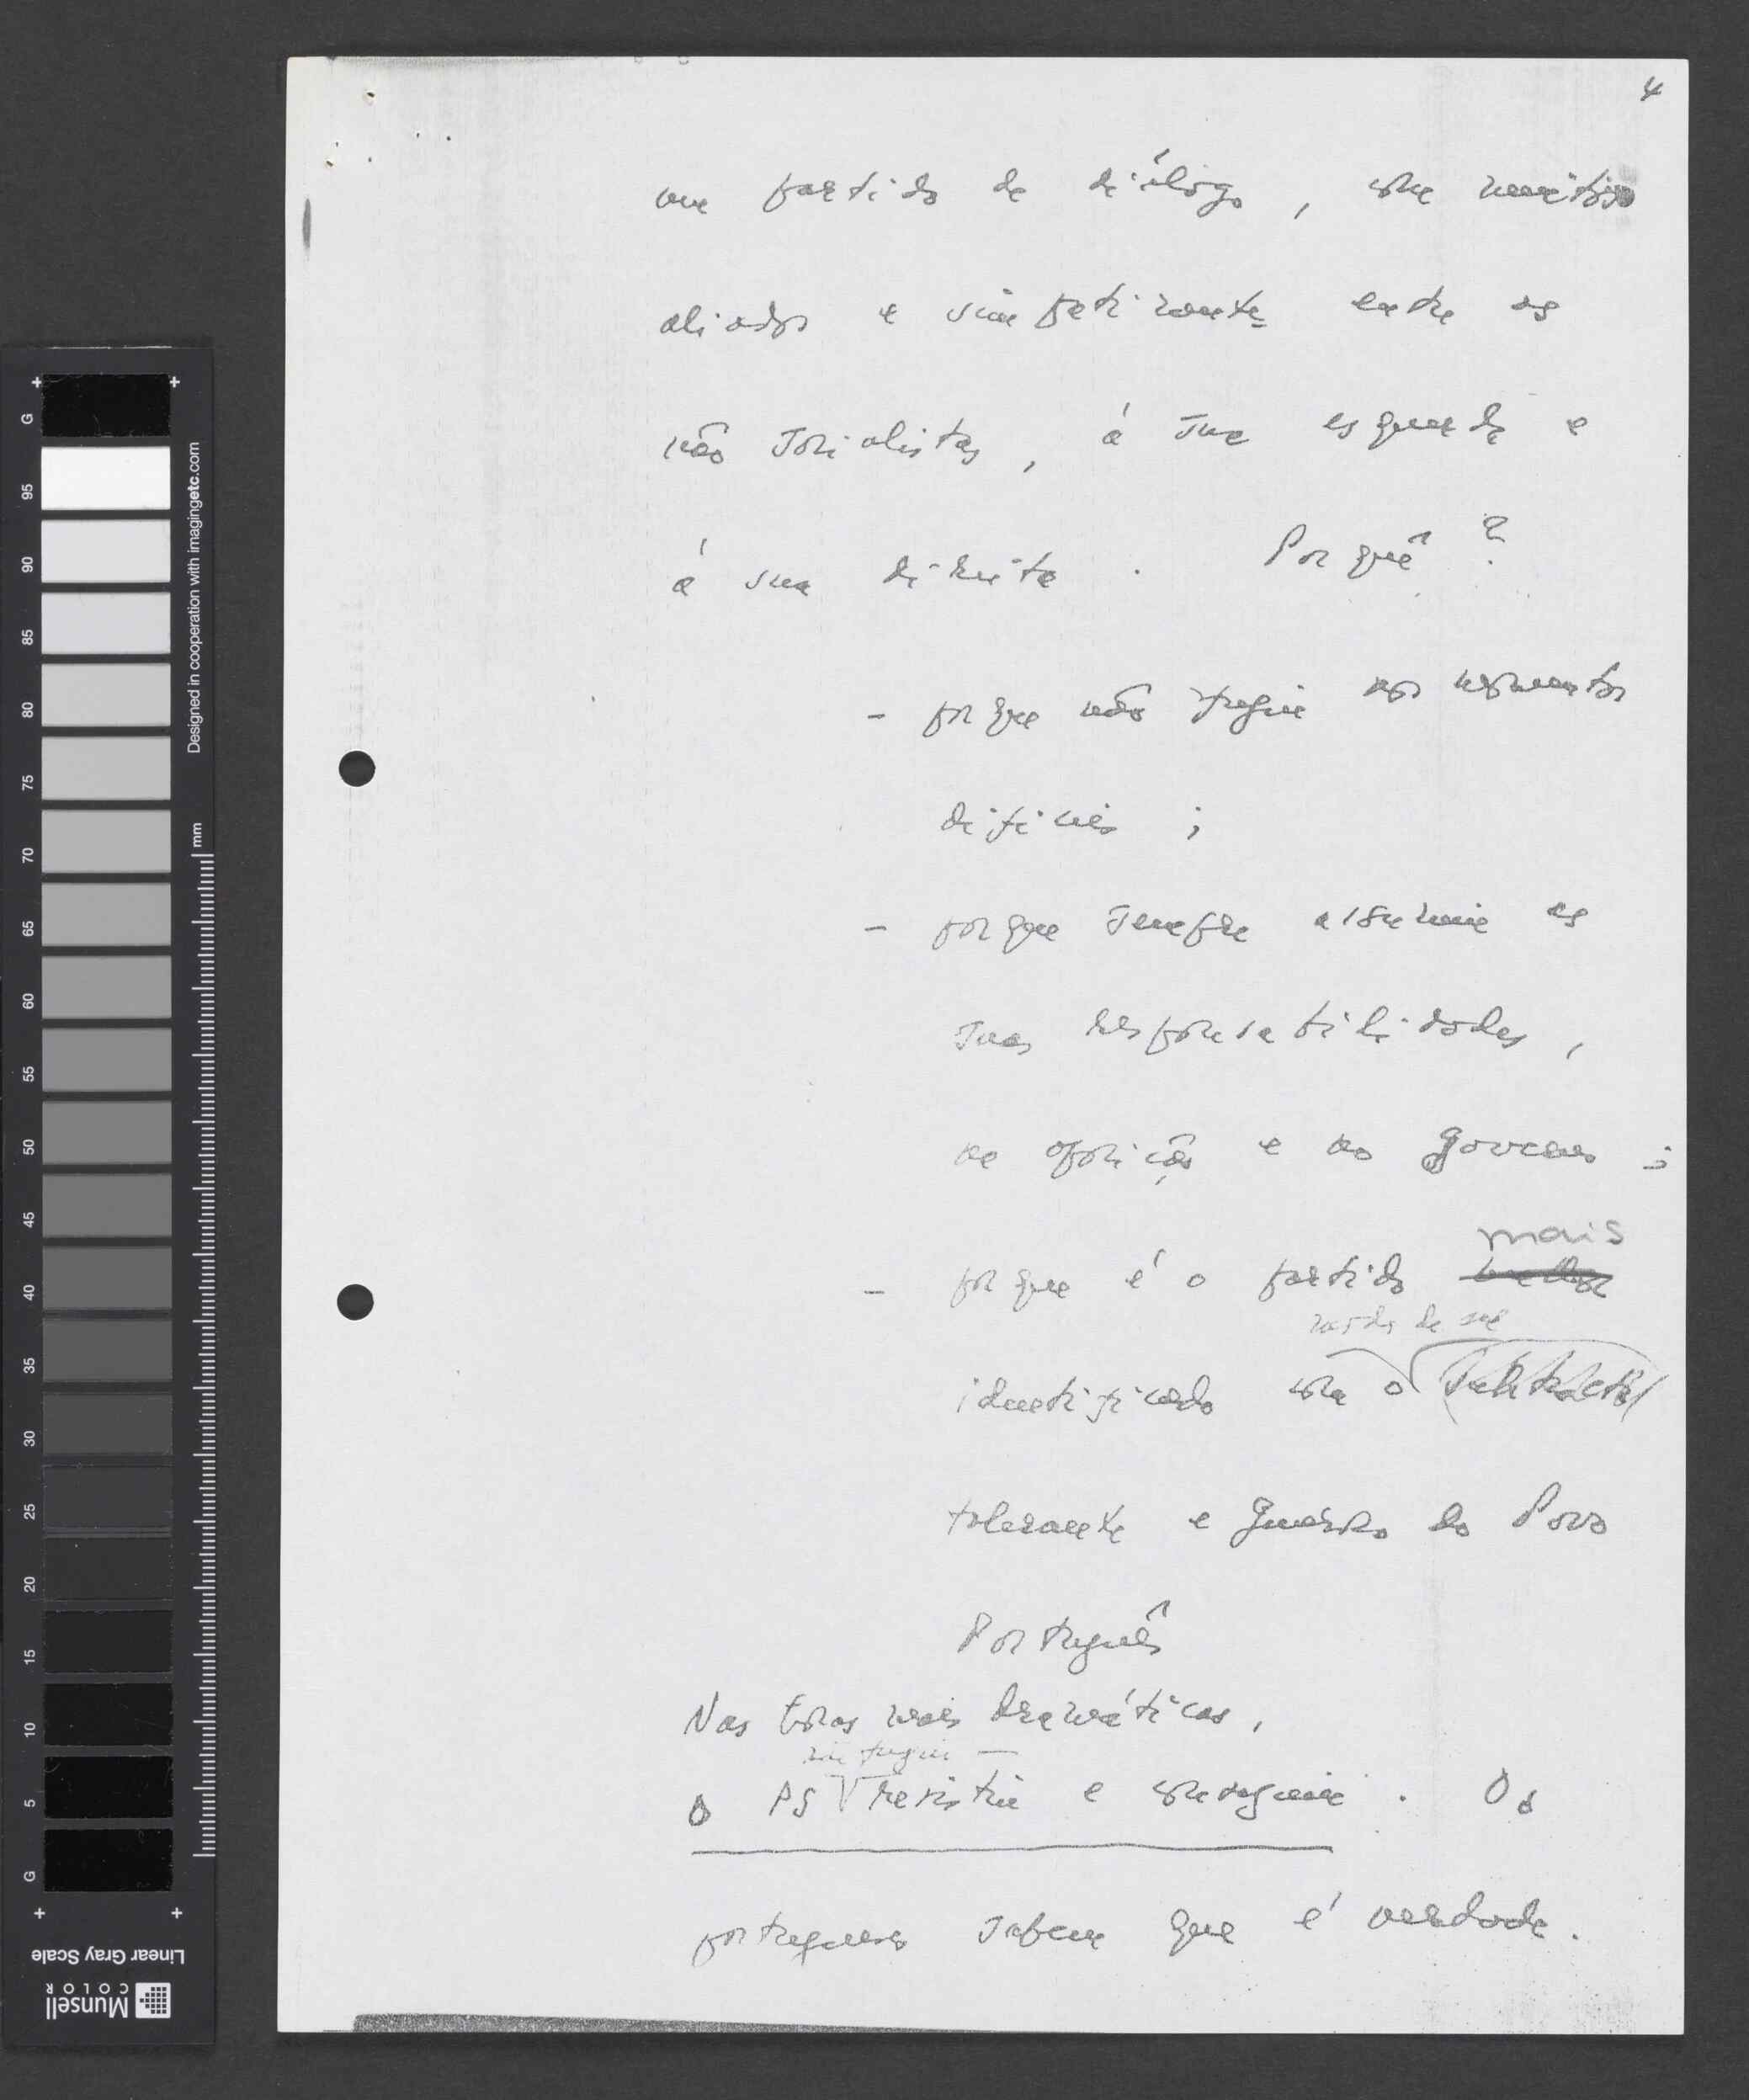 4
um partido de diálogo, com muitos
aliados e simpatizantes entre os
não socialistas, à sua esquerda e
à sua direita. Porquê?
- porque não fugiu nos momentos
difíceis;
- porque sempre assumiu as
suas responsabilidades,
na oposição e no governo;
mais
- porque é o partido melhor
modo de ser
identificado com o
tolerante e generoso do Povo
Português
Nas horas mais dramáticas,
não fugiu —
o PS resistiu e conseguiu. Os
portugueses sabem que é verdade.
G 95 90 85 80 75 70 65 60 55 50 45 40 35 30 25 20 15 10 5 0 G
Designed in cooperation with imagingetc.com
mm
Linear Gray Scale
Munsell
COLOR